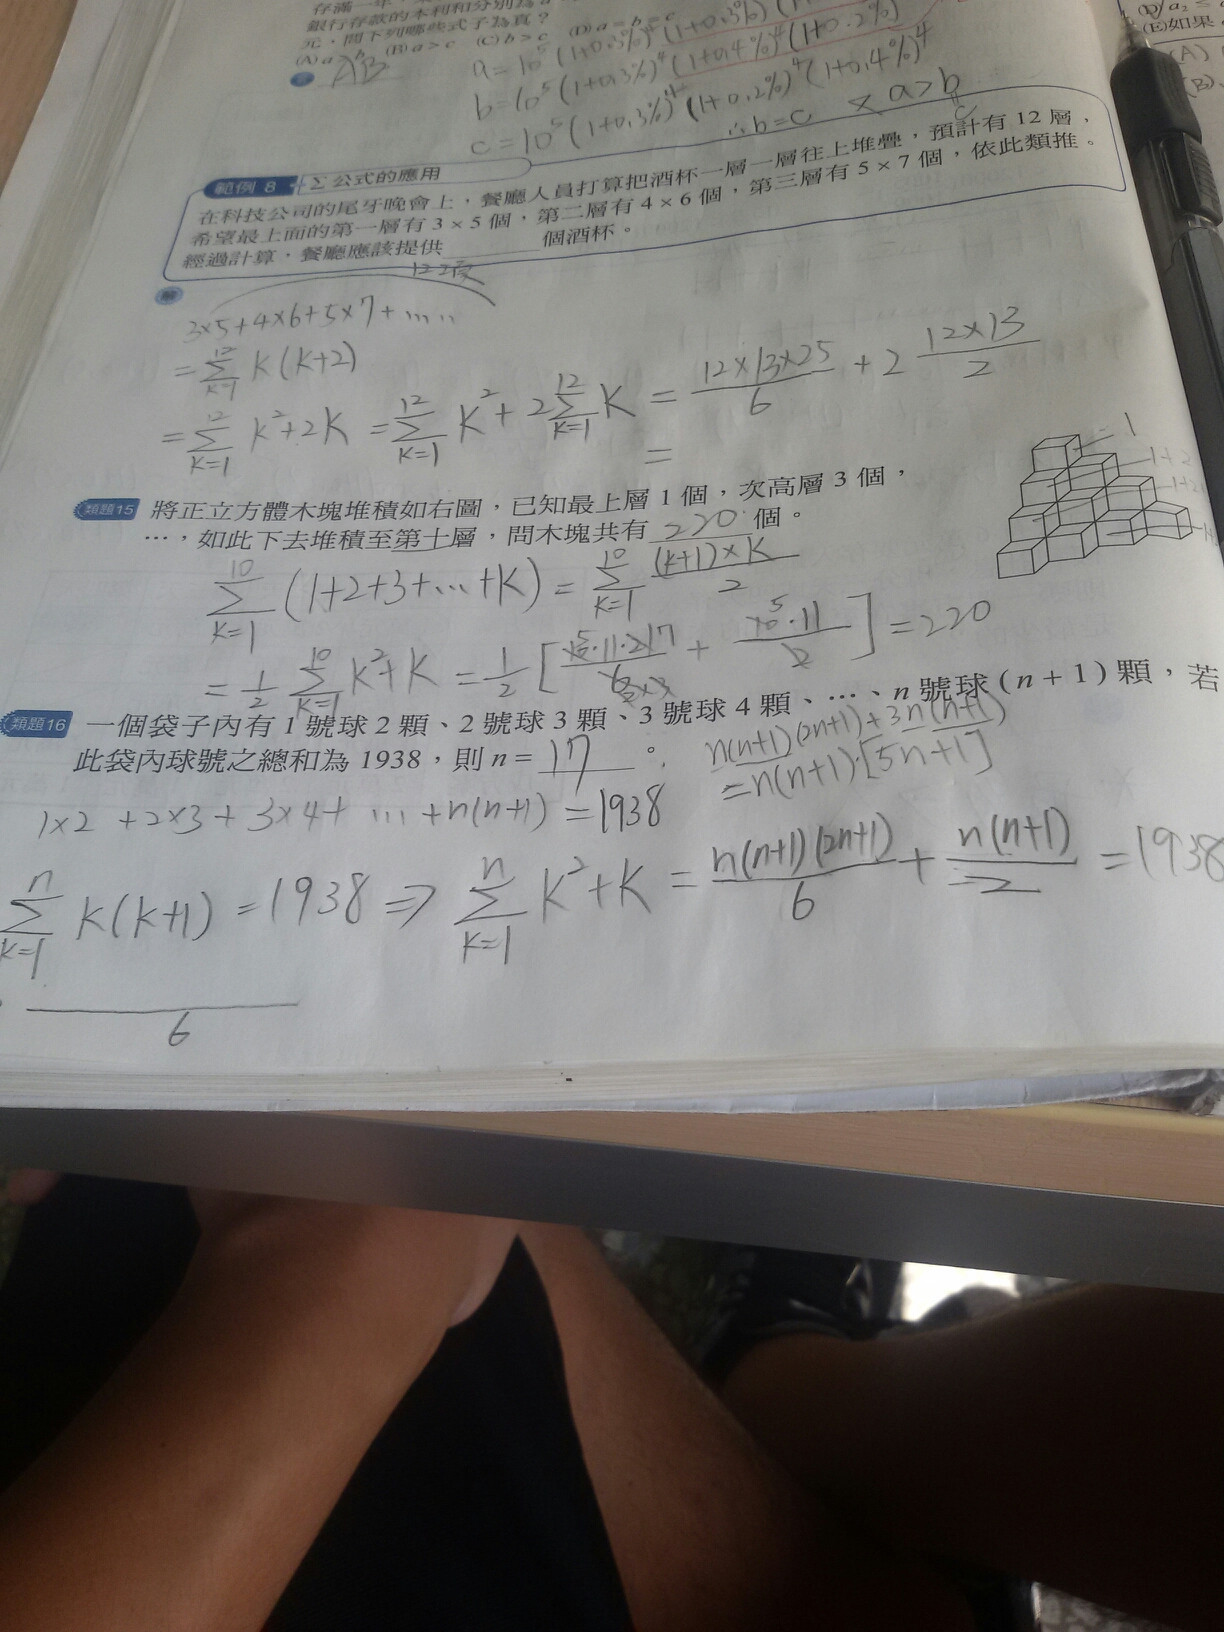 銀行存款的本利和分別為 a
元,問下列哪些式子為真?
(A) a > b (B) a > c (C) b > c (D) a = b = c
AB
a = 10^5 (1+0.3%)^4 (1+0.2%)
b = 10^5 (1+0.3%)^4 (1+0.4%)^4 (1+0.2%)
c = 10^5 (1+0.3%)^4 (1+0.2%)^4 (1+0.4%)^4
∴ b = c < a > b
c
範例 8 Σ 公式的應用
在科技公司的尾牙晚會上,餐廳人員打算把酒杯一層一層往上堆疊,預計有 12 層,
希望最上面的第一層有 3 × 5 個,第二層有 4 × 6 個,第三層有 5 × 7 個,依此類推。
經過計算,餐廳應該提供 個酒杯。
解
3×5+4×6+5×7+ ……
= Σ_{k=1}^{12} k(k+2)
= Σ_{k=1}^{12} k²+2k = Σ_{k=1}^{12} k² + 2Σ_{k=1}^{12} k = 12×13×25/6 + 2 12×13/2
=
類題15 將正立方體木塊堆積如右圖,已知最上層 1 個,次高層 3 個,
…,如此下去堆積至第十層,問木塊共有 220 個。
1
1+2
Σ_{k=1}^{10} (1+2+3+…+k) = Σ_{k=1}^{10} (k+1)×k/2
= 1/2 Σ_{k=1}^{10} k²+k = 1/2 [ + ] = 220
類題16 一個袋子內有 1 號球 2 顆、2 號球 3 顆、3 號球 4 顆、…、n 號球 (n + 1) 顆,若
此袋內球號之總和為 1938,則 n = 17 。
n(n+1)(2n+1)+3n(n+1)
= n(n+1)·[5n+1]
1×2 + 2×3 + 3×4 + … + n(n+1) = 1938
Σ_{k=1}^{n} k(k+1) = 1938 ⇒ Σ_{k=1}^{n} k²+k = n(n+1)(2n+1)/6 + n(n+1)/2 = 1938
6
(E)如果
(A)
(B)